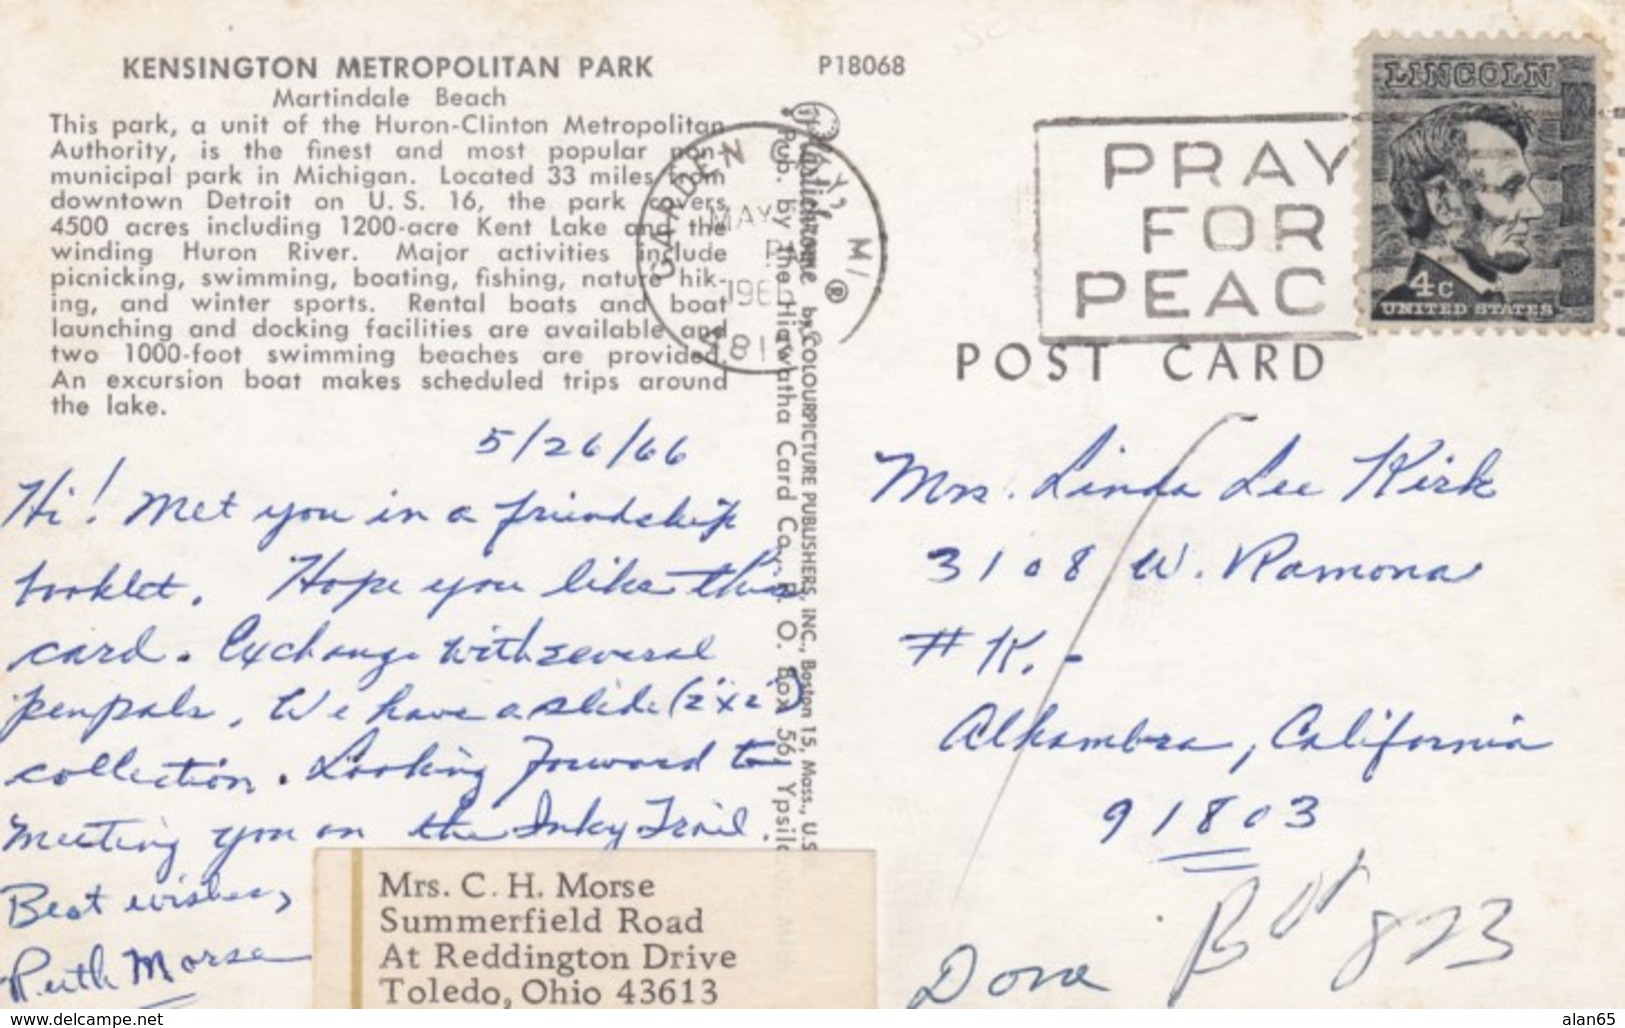 KENSINGTON METROPOLITAN PARK
Martindale Beach
This park, a unit of the Huron-Clinton Metropolitan
Authority, is the finest and most popular non-
municipal park in Michigan. Located 33 miles from
downtown Detroit on U.S. 16, the park covers
4500 acres including 1200-acre Kent Lake and the
winding Huron River. Major activities include
picnicking, swimming, boating, fishing, nature hik-
ing, and winter sports. Rental boats and boat
launching and docking facilities are available and
two 1000-foot swimming beaches are provided.
An excursion boat makes scheduled trips around
the lake.
P18068
GARDEN CITY, MI
MAY
196
481
Plastichrome ® by COLOURPICTURE PUBLISHERS, INC., Boston 15, Mass., U.S.
Pub. by the Hiawatha Card Co., P. O. Box 56, Ypsilanti, Mich.
PRAY
FOR
PEAC
LINCOLN
4c
UNITED STATES
POST CARD
5/26/66
Hi! Met you in a friendship
booklet. Hope you like this
card. Exchange with several
penpals. We have a slide (2"x2")
collection. Looking forward to
meeting you on the Inky Trail.
Best wishes,
Ruth Morse
Mrs. C. H. Morse
Summerfield Road
At Reddington Drive
Toledo, Ohio 43613
Mrs. Linda Lee Kirk
3108 W. Ramona
# K.-
Alhambra, California
91803
Box 823
www.delcampe.net
alan65